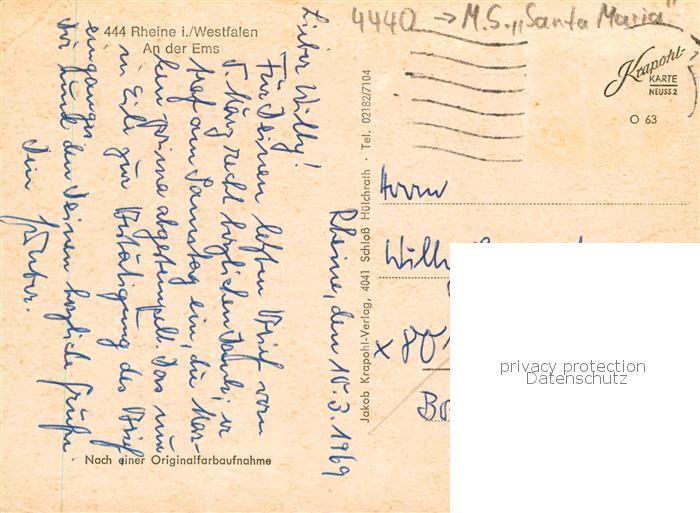 444 Rheine i./Westfalen
An der Ems
4440 → M.S. „Santa Maria"
Krapohl-
KARTE
NEUSS 2
O 63
Rheine, den 10.3.1969
Lieber Willy!
Für Deinen letzten Brief vom
5. März recht herzlichen Dank, er
traf am Samstag ein, die Mar-
ken prima abgestempelt. Das nun
in Eile zur Bestätigung des Brief
einganges.
Dir und den Deinen herzliche Grüße.
Dein
Herrn
Willy
x 80
Jakob Krapohl-Verlag, 4041 Schloß Hülchrath · Tel. 02182/7104
Nach einer Originalfarbaufnahme
privacy protection
Datenschutz